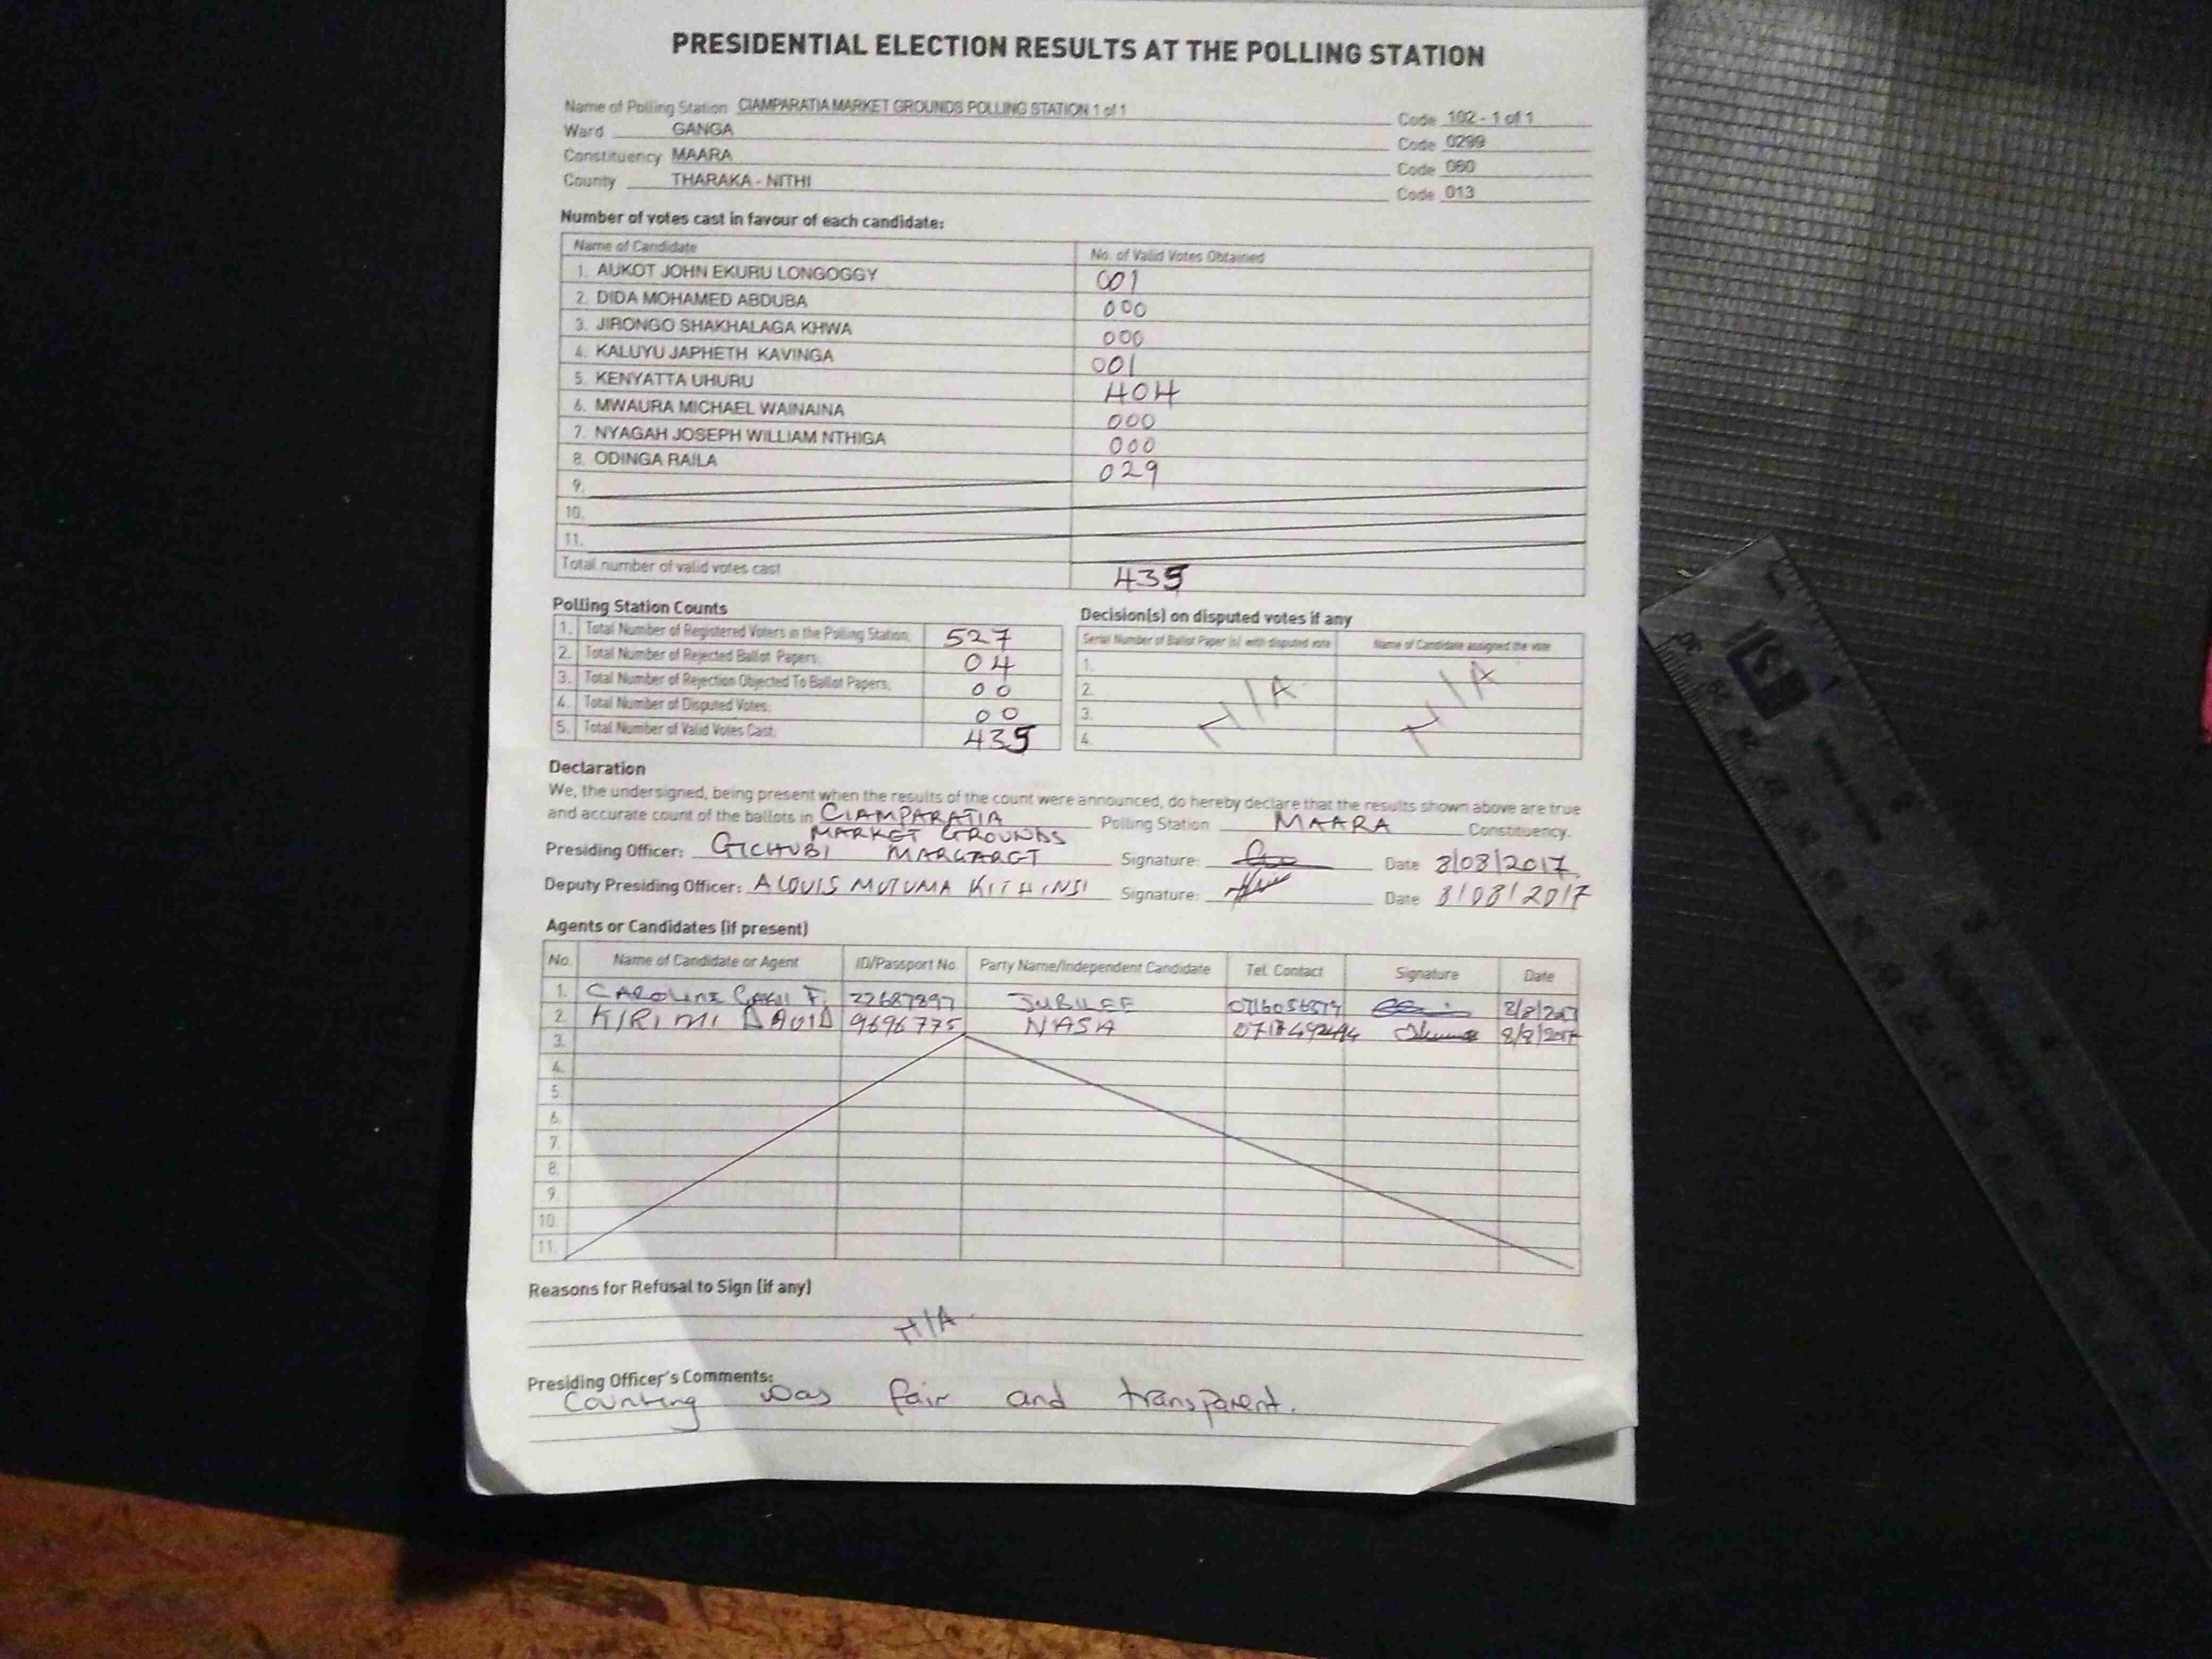 PRESIDENTIAL ELECTION RESULTS AT THE POLLING STATION
Name of Polling Station CIAMPARATIA MARKET GROUNDS POLLING STATION 1 of 1 Code 102 - 1 of 1
Ward GANGA Code 0299
Constituency MAARA Code 060
County THARAKA - NITHI Code 013
Number of votes cast in favour of each candidate:
Name of Candidate No. of Valid Votes Obtained
1. AUKOT JOHN EKURU LONGOGGY 001
2. DIDA MOHAMED ABDUBA 000
3. JIRONGO SHAKHALAGA KHWA 000
4. KALUYU JAPHETH KAVINGA 001
5. KENYATTA UHURU 404
6. MWAURA MICHAEL WAINAINA 000
7. NYAGAH JOSEPH WILLIAM NTHIGA 000
8. ODINGA RAILA 029
9.
10.
11.
Total number of valid votes cast 435
Polling Station Counts
1. Total Number of Registered Voters in the Polling Station; 527
2. Total Number of Rejected Ballot Papers; 04
3. Total Number of Rejection Objected To Ballot Papers; 00
4. Total Number of Disputed Votes; 00
5. Total Number of Valid Votes Cast; 435
Decision(s) on disputed votes if any
Serial Number of Ballot Paper (s) with disputed vote Name of Candidate assigned the vote
1.
2. N/A N/A
3.
4.
Declaration
We, the undersigned, being present when the results of the count were announced, do hereby declare that the results shown above are true
and accurate count of the ballots in CIAMPARATIA MARKET GROUNDS Polling Station MAARA Constituency.
Presiding Officer: GICHUBI MARGARET Signature: Date 8/08/2017
Deputy Presiding Officer: ALOUIS MUTUMA KITHINSI Signature: Date 8/08/2017
Agents or Candidates (if present)
No. Name of Candidate or Agent ID/Passport No. Party Name/Independent Candidate Tel. Contact Signature Date
1. CAROLINE F. 22687897 JUBILEE 8/8/2017
2. KIRIMI DAVID 9696775 NASA 8/8/2017
3.
4.
5.
6.
7.
8.
9.
10.
11.
Reasons for Refusal to Sign (if any)
N/A
Presiding Officer's Comments:
Counting was fair and transparent.